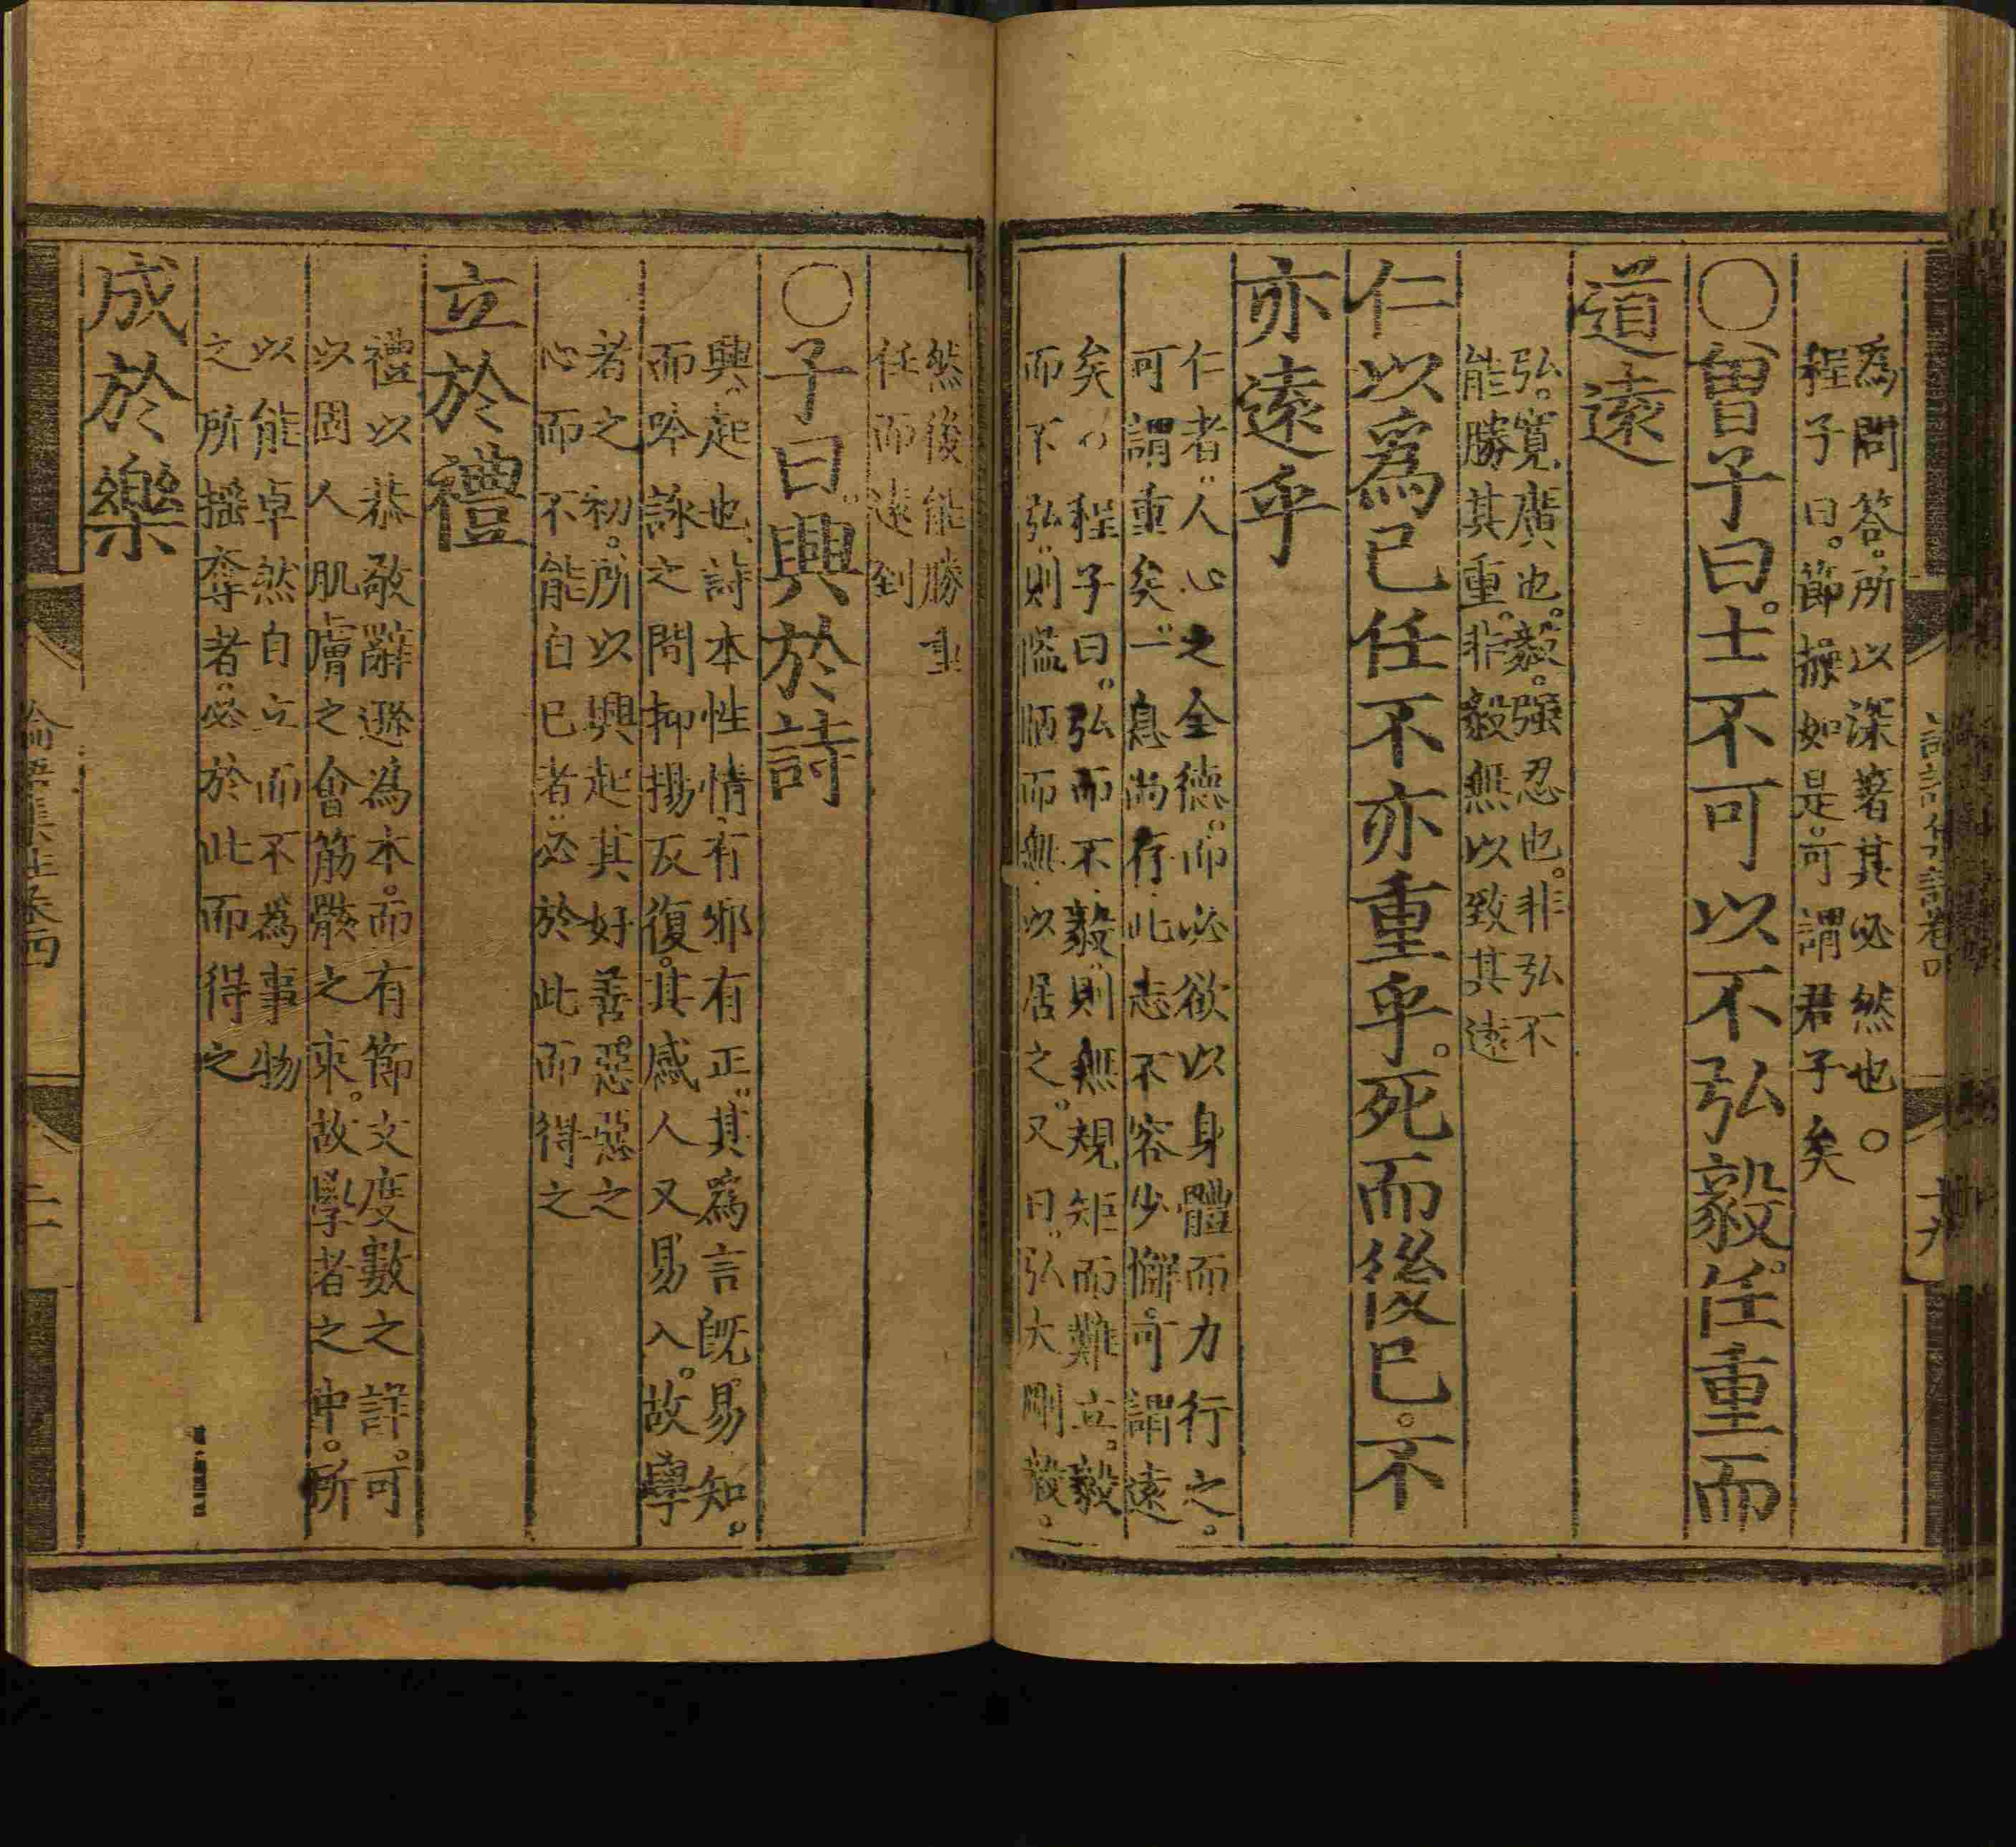 為問答。所以深著其必然也。○
程子曰。節操如是。可謂君子矣
○曾子曰。士不可以不弘毅。任重而
道遠
弘。寬廣也。毅。强忍也。非弘不
能勝其重。非毅無以致其遠
仁以爲己任不亦重乎。死而後已。不
亦遠乎
仁者。人心之全德。而必欲以身體而力行之。
可謂重矣。一息尚存。此志不容少懈。可謂遠
矣。程子曰。弘而不毅。則無規矩而難立。毅
而不弘。則隘陋而無以居之。又曰。弘大剛毅。
然後能勝重
任而遠到
○子曰。興於詩
興。起也。詩本性情。有邪有正。其爲言旣易知。
而吟詠之間抑揚反復。其感人又易入。故學
者之初。所以興起其好善。惡惡之
心而不能自已者。必於此而得之
立於禮
禮以恭敬辭遜為本。而有節文度數之詳。可
以固人肌膚之會筋骸之束。故學者之中。所
以能卓然自立而不為事物
之所搖奪者。必於此而得之
成於樂
論語集註卷四